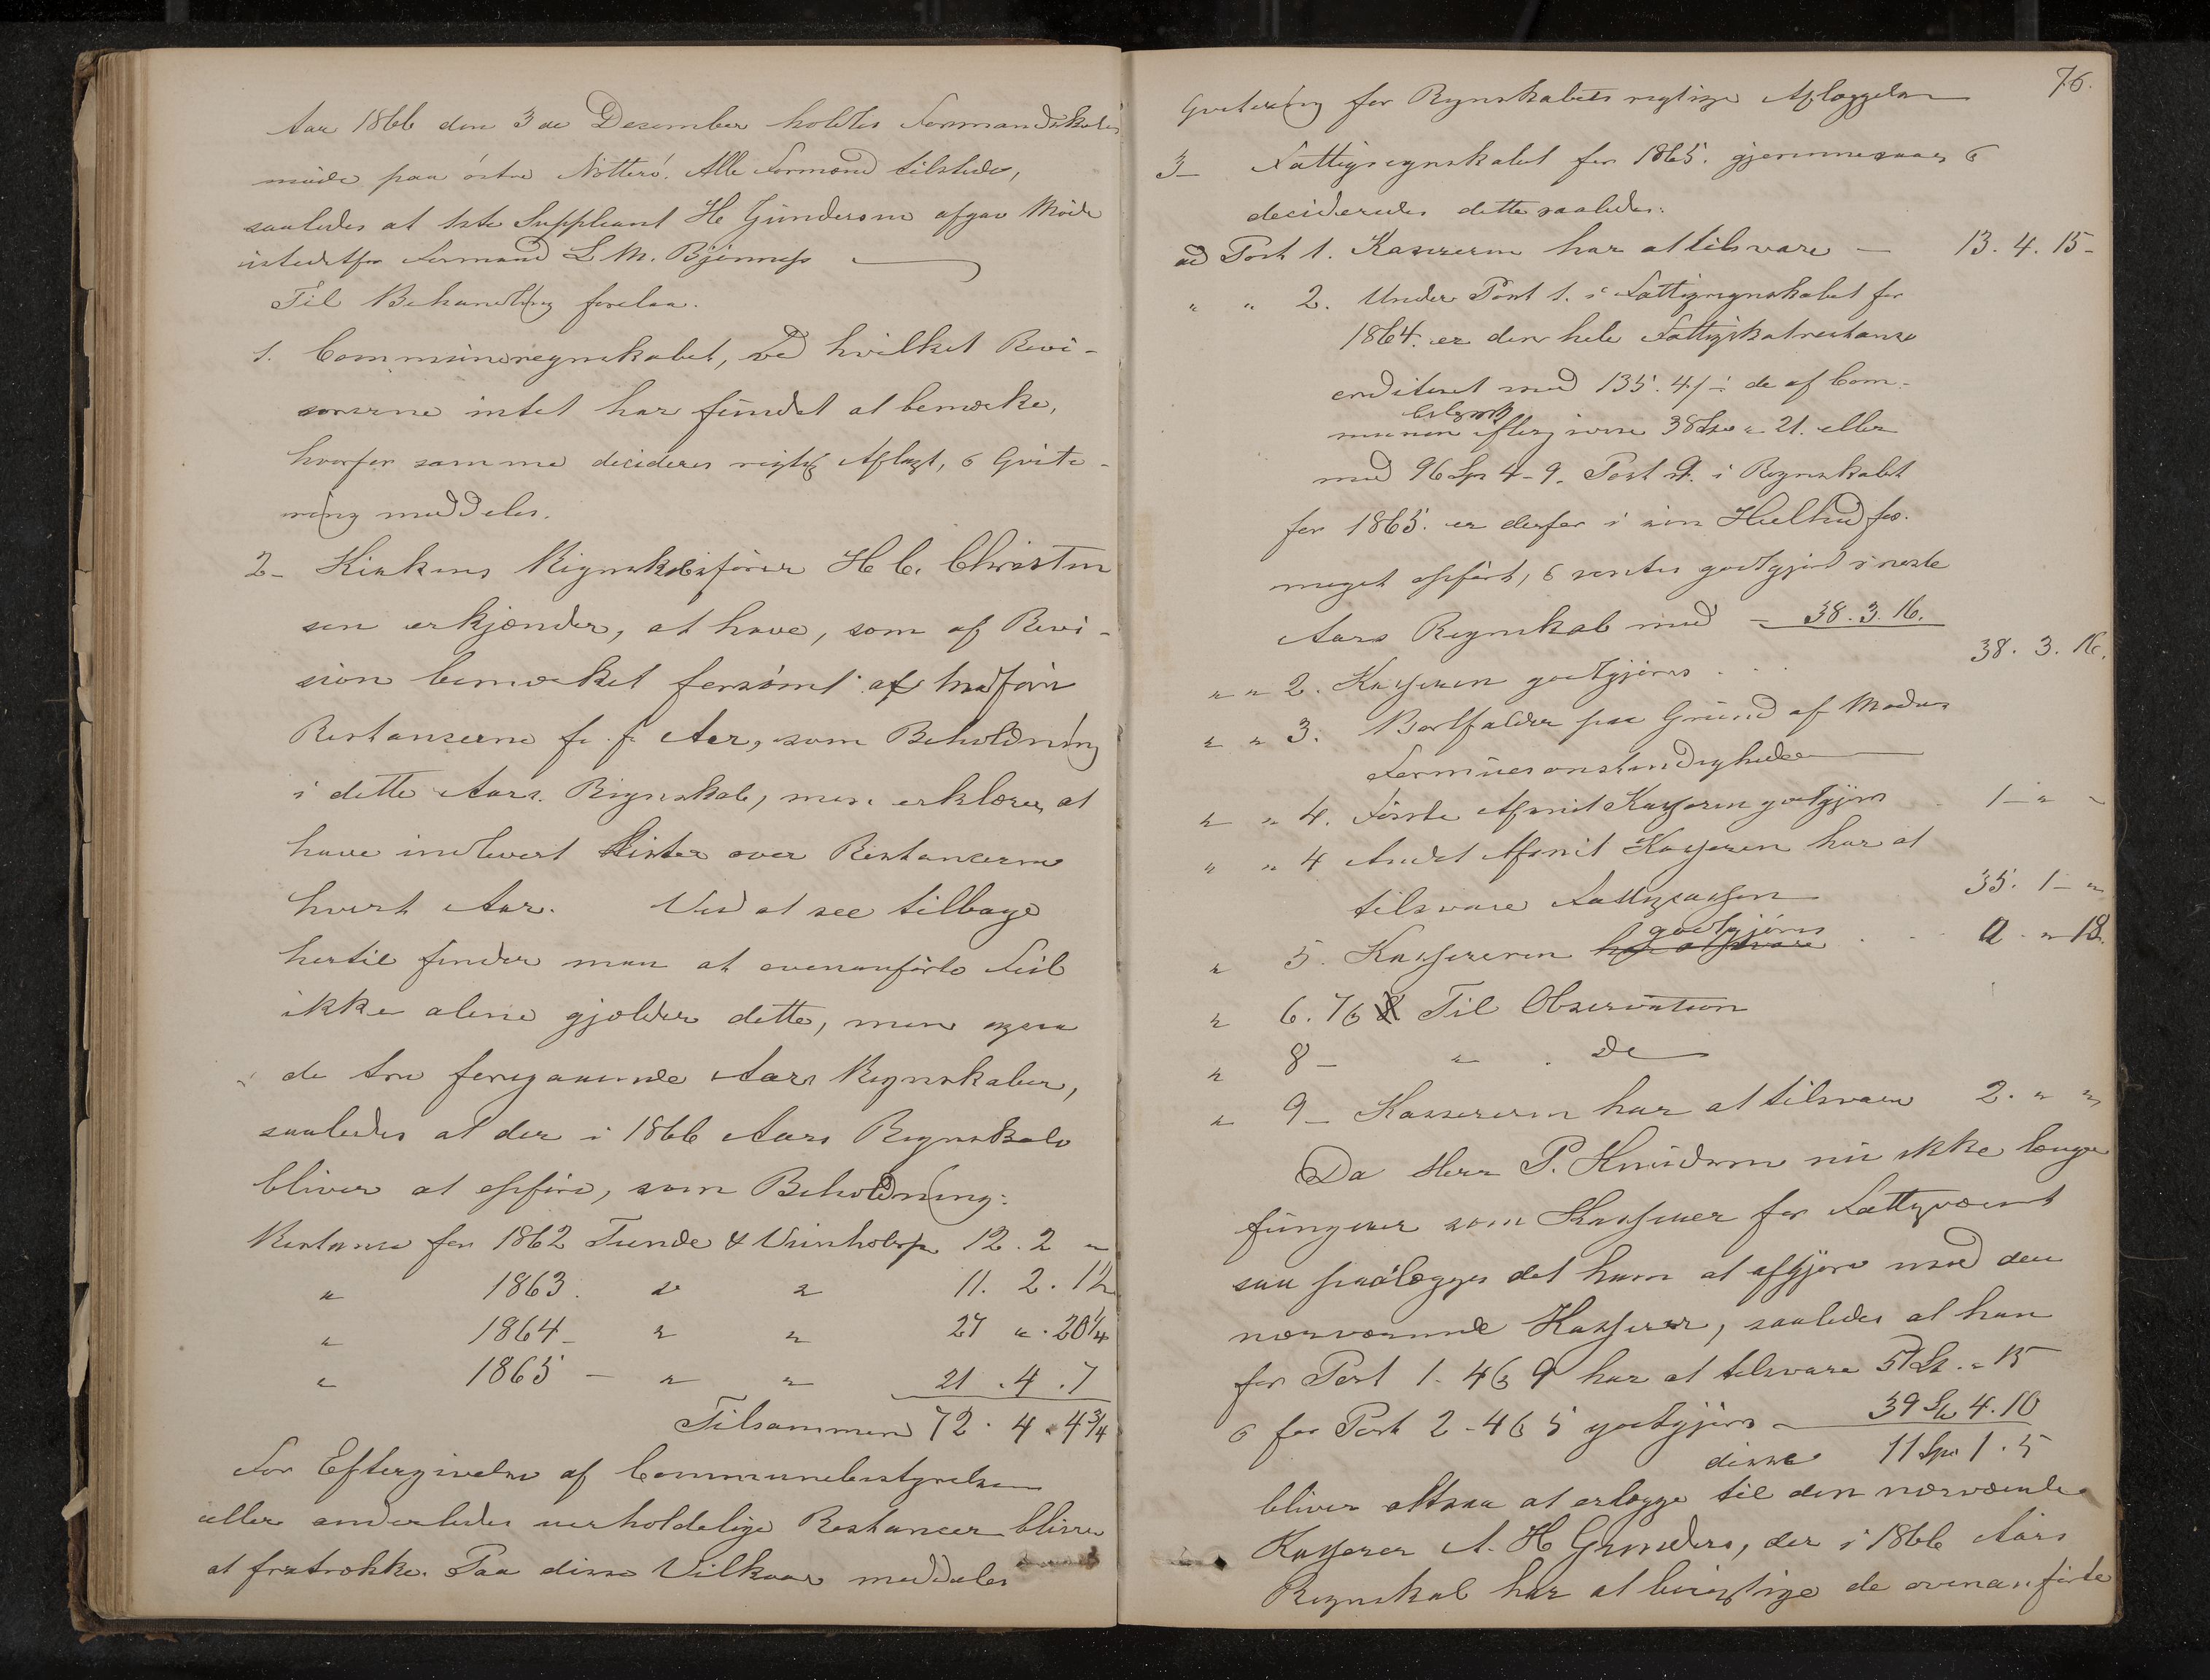 Aar 1866 den 3de Desember holdtes Formandskabs
møde paa østre Nøtterø. Alle Formænd tilstede,
saaledes at 1ste Suppleant H Gundersen afgav Møde
istedetfor Formand L. M. Bjønness
Til Behandling forelaa.
1. Communeregnskabet, ved hvilket Revi-
sorerne intet har fundet at bemærke,
hvorfor samme decideres rigtig Aflagt, & Qvite-
ring meddeles.
2- Kirkens Regnskabsfører H C. Christen
sen erkjender, at have, som af Revi-
sion bemærket forsømt at medføre
Restanserne f. f. Aar, som Beholdning
i dette Aars Regnskab, men erklærer, at
have indlevert Lister over Restancerne
hvert Aar. Ved at see tilbage
hertil finder man at ovenanførte Feil
ikke alene gjælder dette, men ogsaa
de tre foregaaende Aars Regnskaber,
saaledes at der i 1866 Aars Regnskab
bliver at opføre, som Beholdning:
Restance for 1862 Tiende & 12. 2 "
" 1863. " " 11. 2. 12
" 1864- " " 27 " . 20 1/4
" 1865 - " " 21 . 4 . 7
Tilsammen 72. 4. 4 3/4
For Eftergivelse af Communebestyrelsen
eller anderledes uerholdelige Restancer bliver
at fratrække. Paa disse Vilkaar meddeles
76.
Qvitering for Regnskabets rigtige Aflæggelse
3- Fattigregnskabet for 1865. gjennemsaaes &
decideredes dette saaledes:
ad Post 1. Kasseren har at tilsvare - 13. 4. 15-
" " 2. Under Post 1. i Fattigregnskabet for
1864. er den hele Fattigskatrestanse
crediteret med 135. 4/ ÷ de af Com-
munen eftergivne 38 Spd " 21. eller
med 96 Sp 4-9. Post 9. i Regnskabet
for 1865. er derfor i sin Heelhed for
meget opført, & ventes godtgjort i næste
Aars Regnskab med - 38. 3. 16.
" " 2. Kasseren godtgjøres . . 38. 3. 16.
" " 3. Bortfalder paa Grund af Mødres
Formuesomstændigheder
" " 4. Første Afsnit Kasseren godtgjøres . 1 - " "
" " 4 Andet Afsnit Kasseren har at
tilsvare Fattigcassen 35. 1 - "
godtgjøres
" 5. Kassereren har at tilsvare . . " . " 18.
" 6. 7 & 8 Til Observation
" 8- " . De
" 9- Kassereren har at tilsvare 2. " "
Da Herr P. Knudsen nu ikke længer
fungerer som Kasserer for Fattigvæsnet
saa paalægges det ham at afgjøre med den
nærværende Kasserer, saaledes at han
for Post 1- 4 & 9 har at tilsvare 51 Sp. " 15
& for Post 2 - 4 & 5 godtgjøres - 39 Sp 4. 10
disse 11 Spd 1. 5
bliver altsaa at erlægge til den nærværende
Kasserer A. H. Gundersen, der i 1866 Aars
Regnskab har at berigtige de ovenanførte